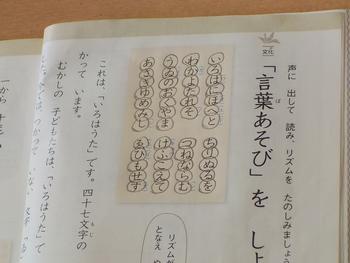 声に 出して 読み、リズムを たのしみましょう
文化
「言葉あそび」を し
いろはにほへと
ちりぬるを
わかよたれそ
つねならむ
うゐのおくやま
けふこえて
あさきゆめみし
ゑひもせす
リズムが
となえ
これは、「いろはうた」です。四十七文字の
かって います。
むかしの 子どもたちは、「いろはうた」で
一から